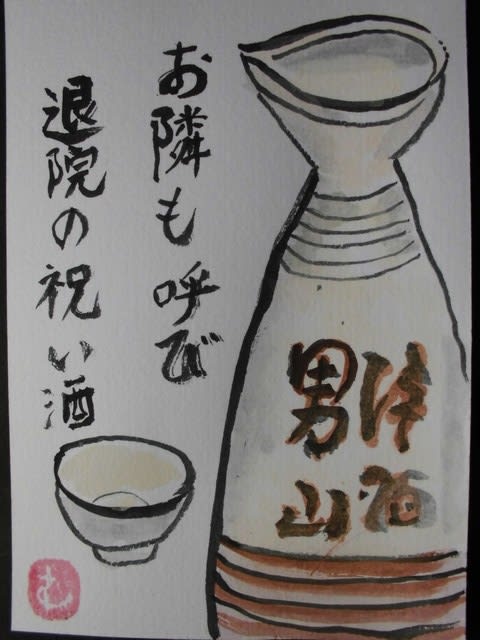 お隣も呼び
退院の祝い酒
清酒
男山
む